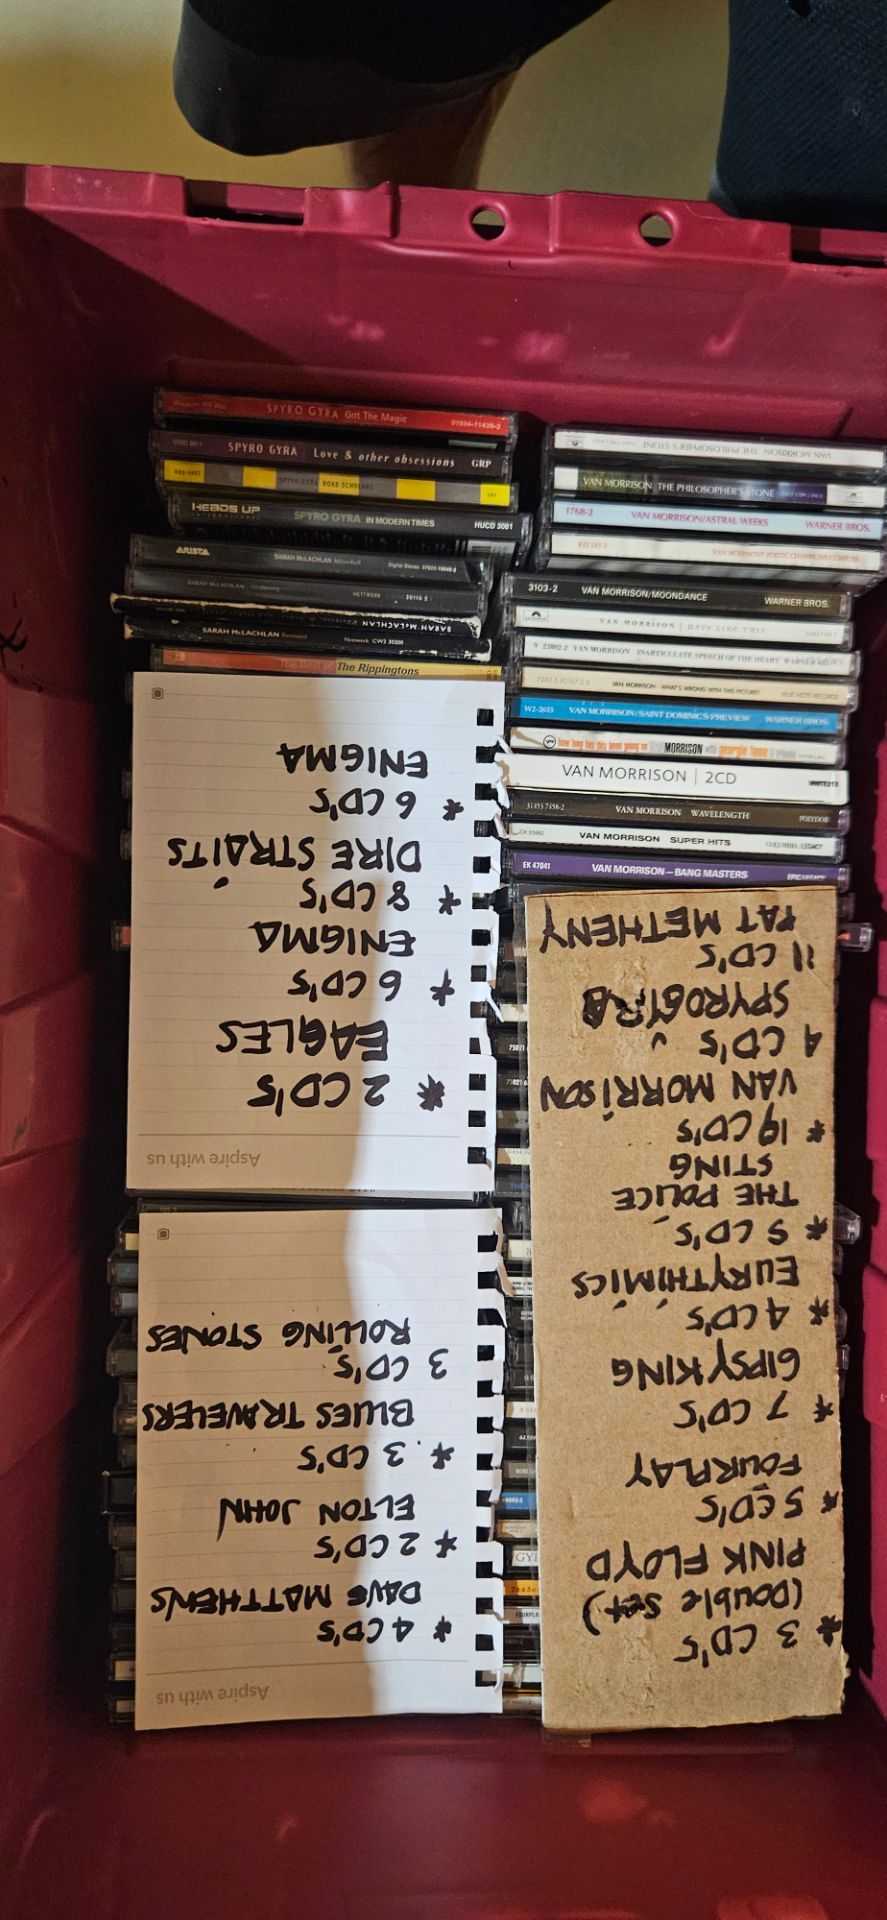 SPYRO GYRA Got The Magic 01934-11439-2
SPYRO GYRA Love & other obsessions GRP
SPYRO GYRA ROAD SCHOLARS
HEADS UP INTERNATIONAL SPYRO GYRA IN MODERN TIMES HUCD 3061
ARISTA SARAH McLACHLAN
SARAH McLACHLAN NETTWERK 30116 2
SARAH McLACHLAN
SARAH McLACHLAN Nettwerk CW2 30200
The Best of The Rippingtons
VAN MORRISON THE PHILOSOPHER'S STONE
VAN MORRISON THE PHILOSOPHER'S STONE
1768-2 VAN MORRISON/ASTRAL WEEKS WARNER BROS.
VAN MORRISON POETIC CHAMPIONS COMPOSE
3103-2 VAN MORRISON/MOONDANCE WARNER BROS.
VAN MORRISON | DAYS LIKE THIS
9 23802-2 VAN MORRISON INARTICULATE SPEECH OF THE HEART WARNER BROS.
VAN MORRISON - WHAT'S WRONG WITH THIS PICTURE? BLUE NOTE RECORDS
W2-2633 VAN MORRISON/SAINT DOMINIC'S PREVIEW WARNER BROS.
how long has this been going on MORRISON with georgie fame & friends
VAN MORRISON | 2CD
31453 7458-2 VAN MORRISON WAVELENGTH POLYDOR
VAN MORRISON SUPER HITS COLUMBIA/LEGACY
EK 47041 VAN MORRISON — BANG MASTERS EPIC/LEGACY
Aspire with us
* 4 CD'S
DAVE MATTHEWS
* 2 CD'S
ELTON JOHN
* 3 CD'S
BLUES TRAVELERS
3 CD'S
ROLLING STONES
Aspire with us
* 2 CD'S
EAGLES
* 6 CD'S
ENIGMA
* 8 CD'S
DIRE STRAITS
* 6 CD'S
ENIGMA
* 3 CD'S
(DOUBLE SET)
PINK FLOYD
* 5 CD'S
FOURPLAY
* 7 CD'S
GIPSY KING
* 4 CD'S
EURYTHIMICS
* 5 CD'S
THE POLICE
STING
* 19 CD'S
VAN MORRISON
4 CD'S
SPYROGYRA
11 CD'S
PAT METHENY